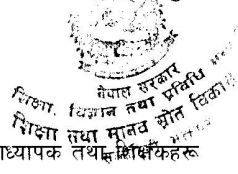 नेपाल सरकार
शिक्षा, विज्ञान तथा प्रविधि
शिक्षा तथा मानव स्रोत विकास
ध्यापक तथा शिक्षकहरू